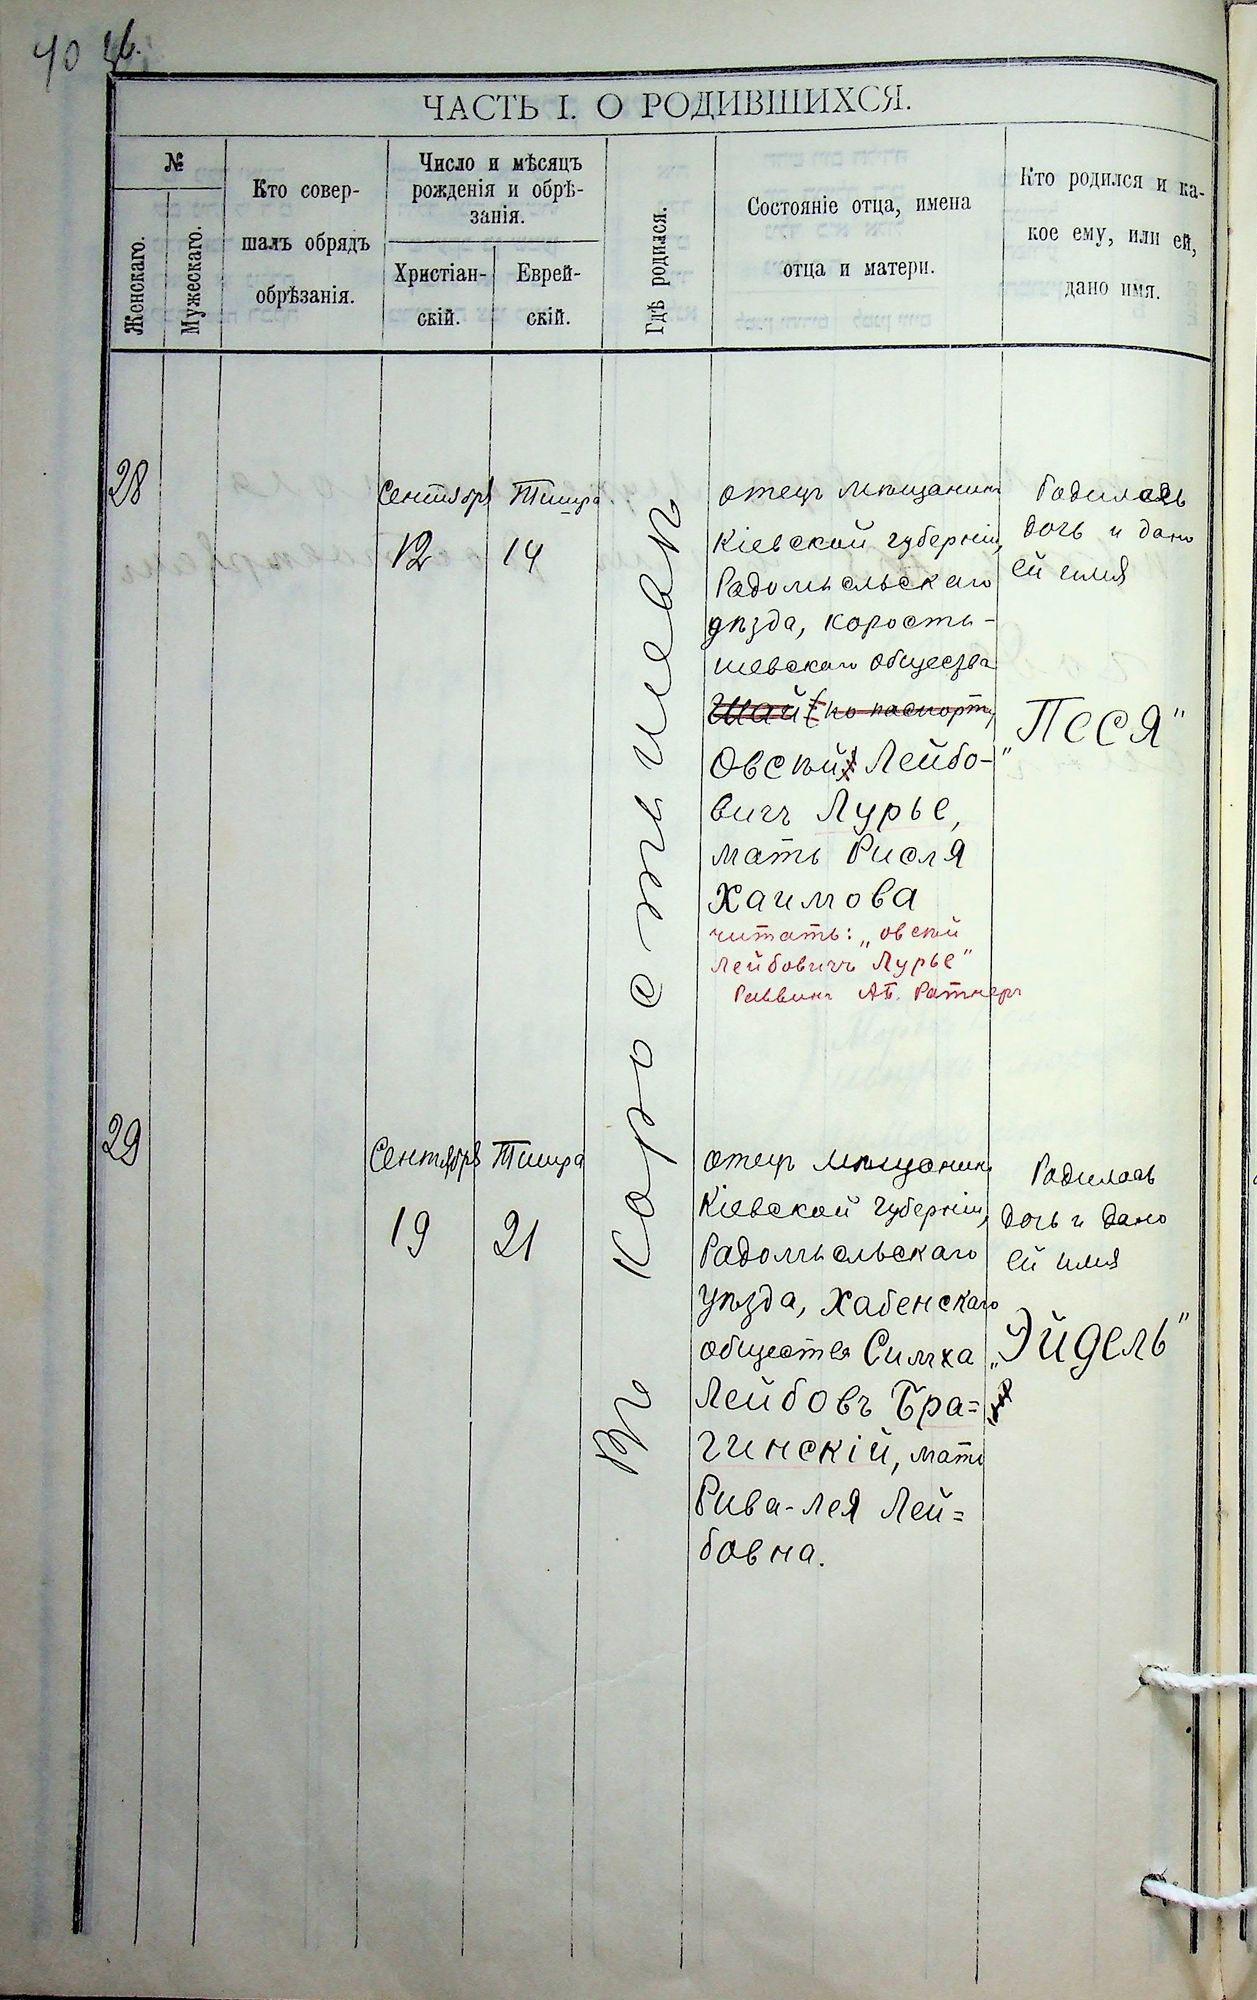 40
ЧАСТЬ I. О РОДИВШИХСЯ.
№
Женскаго.
Мужескаго.
Кто совер-
шалъ обрядъ
обрѣзанія.
Число и мѣсяцъ
рожденія и обрѣ-
занія.
Христіан-
скій.
Еврей-
скій.
Гдѣ родился.
Состояніе отца, имена
отца и матери.
Кто родился и ка-
кое ему, или ей,
дано имя.
28
Сентября
12
Тишра
14
Въ Коростишевѣ
отецъ мѣщанинъ
Кіевской губерніи,
Радомысльскаго
уѣзда, корости-
шевскаго общества
Шай (по паспорту
Овсѣй) Лейбо-
вичъ Лурье,
мать Рисля
Хаимова
читать: „Овсѣй
Лейбовичъ Лурье"
Раввинъ АБ. Ратнеръ
Родилась
дочь и дано
ей имя
„Песя"
29
Сентября
19
Тишра
21
отецъ мѣщанинъ
Кіевской губерніи,
Радомысльскаго
уѣзда, Хабенскаго
общества Симха
Лейбовъ Бра=
гинскій, мать
Рива-Лея Лей=
бовна.
Родилась
дочь и дано
ей имя
„Эйдель"